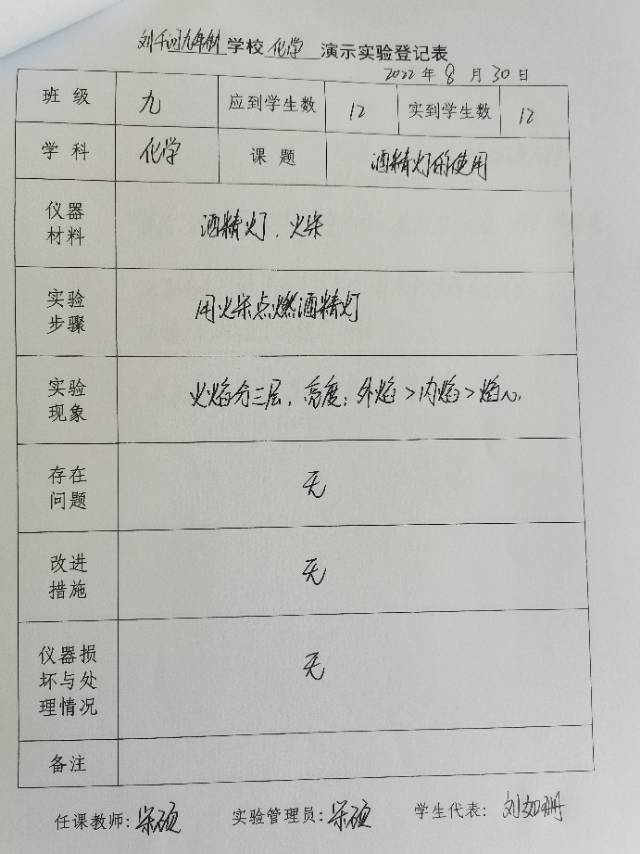 刘千河九年制学校 化学 演示实验登记表
2022 年 8 月 30 日
班级 九 应到学生数 12 实到学生数 12
学科 化学 课题 酒精灯的使用
仪器
材料
酒精灯、火柴
实验
步骤
用火柴点燃酒精灯
实验
现象
火焰分三层,亮度:外焰>内焰>焰心.
存在
问题
无
改进
措施
无
仪器损
坏与处
理情况
无
备注
任课教师: 实验管理员: 学生代表: